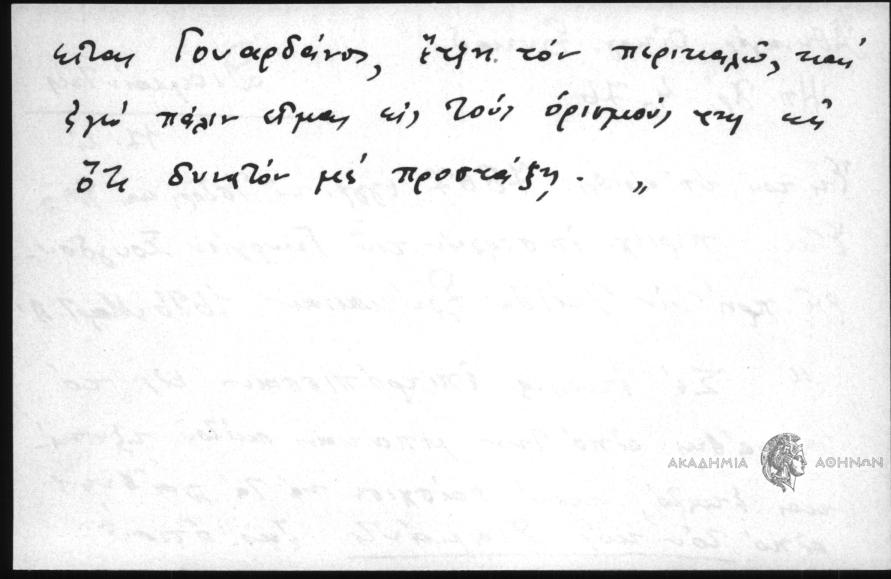 εἶναι Γουαρδιάνος, ἔτζη τόν περικαλῶ, καί
ἐγώ πάλιν εἶμαι εἰς τούς ὁρισμούς της εἰς
ὅτι δυνατόν μέ προστάξῃ. "
ΑΚΑΔΗΜΙΑ ΑΘΗΝΩΝ